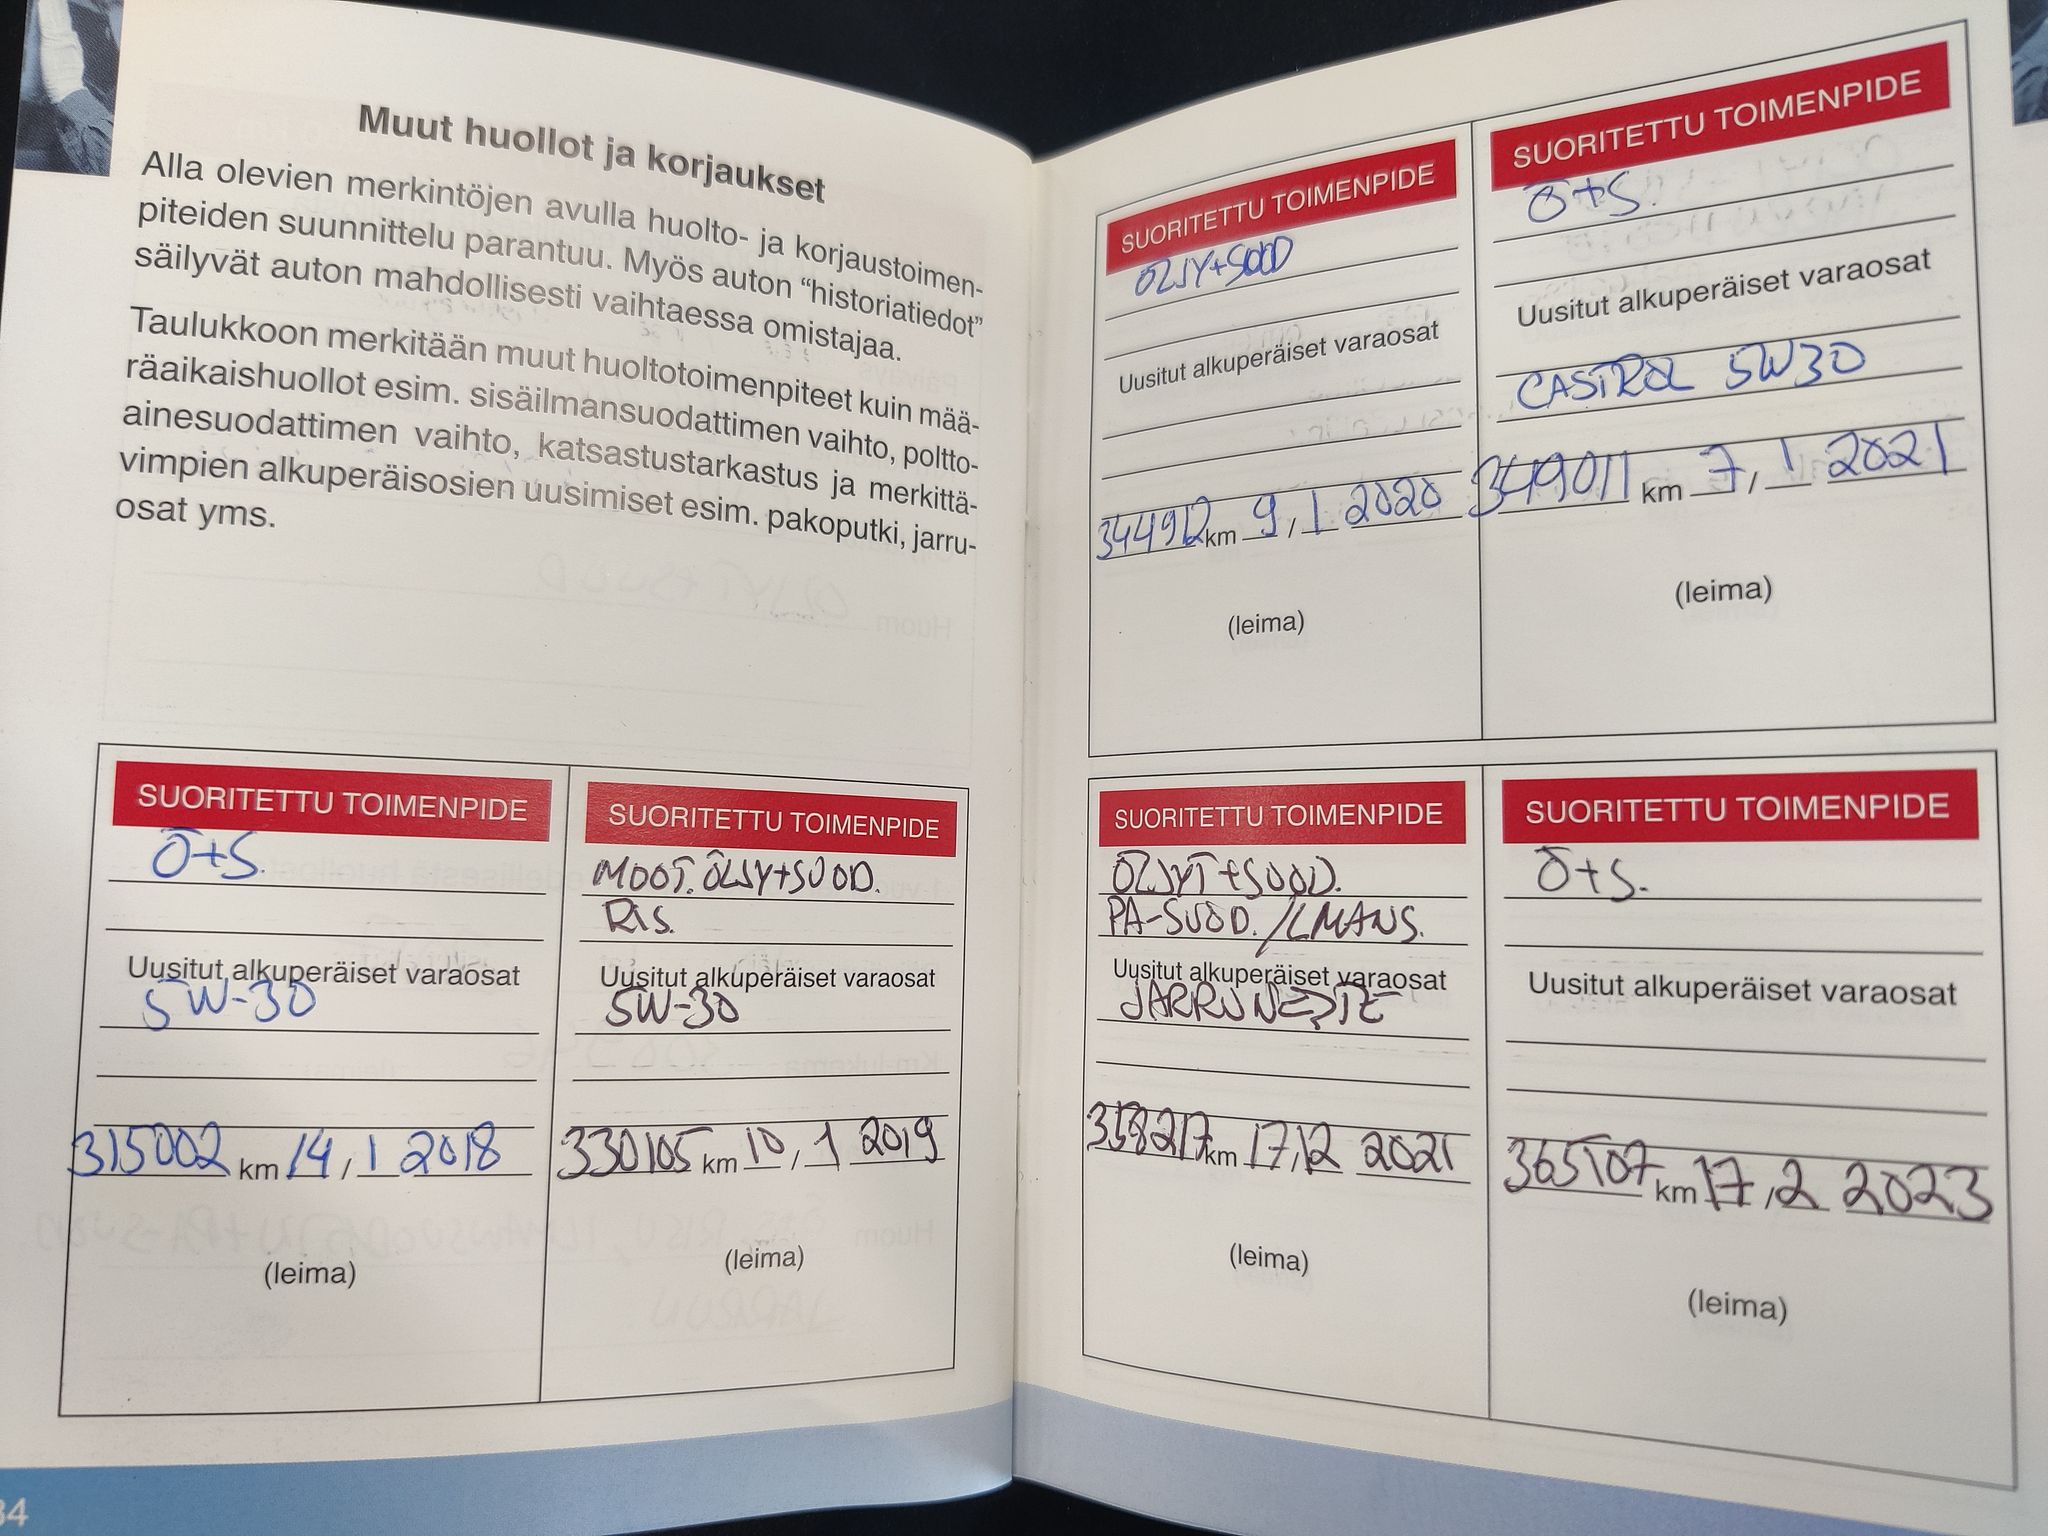 Muut huollot ja korjaukset
Alla olevien merkintöjen avulla huolto- ja korjaustoimen-
piteiden suunnittelu parantuu. Myös auton “historiatiedot”
säilyvät auton mahdollisesti vaihtaessa omistajaa.
Taulukkoon merkitään muut huoltotoimenpiteet kuin mää-
räaikaishuollot esim. sisäilmansuodattimen vaihto, poltto-
ainesuodattimen vaihto, katsastustarkastus ja merkittä-
vimpien alkuperäisosien uusimiset esim. pakoputki, jarru-
osat yms.
SUORITETTU TOIMENPIDE
Ö+S.
Uusitut alkuperäiset varaosat
5W-30
315002 km 14, 1 2018
(leima)
SUORITETTU TOIMENPIDE
MOOT. ÖLJY+SUOD.
RIS.
Uusitut alkuperäiset varaosat
5W-30
330105 km 10, 1 2019
(leima)
34
SUORITETTU TOIMENPIDE
ÖLJY+SUOD
Uusitut alkuperäiset varaosat
344912 km 9, 1 2020
(leima)
SUORITETTU TOIMENPIDE
Ö+S.
Uusitut alkuperäiset varaosat
CASTROL 5W30
349011 km 7, 1 2021
(leima)
SUORITETTU TOIMENPIDE
ÖLJYT+SUOD.
PA-SUOD. ILMANS.
Uusitut alkuperäiset varaosat
JARRUNESTE
358217 km 17, 12 2021
(leima)
SUORITETTU TOIMENPIDE
Ö+S.
Uusitut alkuperäiset varaosat
365107 km 17, 2 2023
(leima)